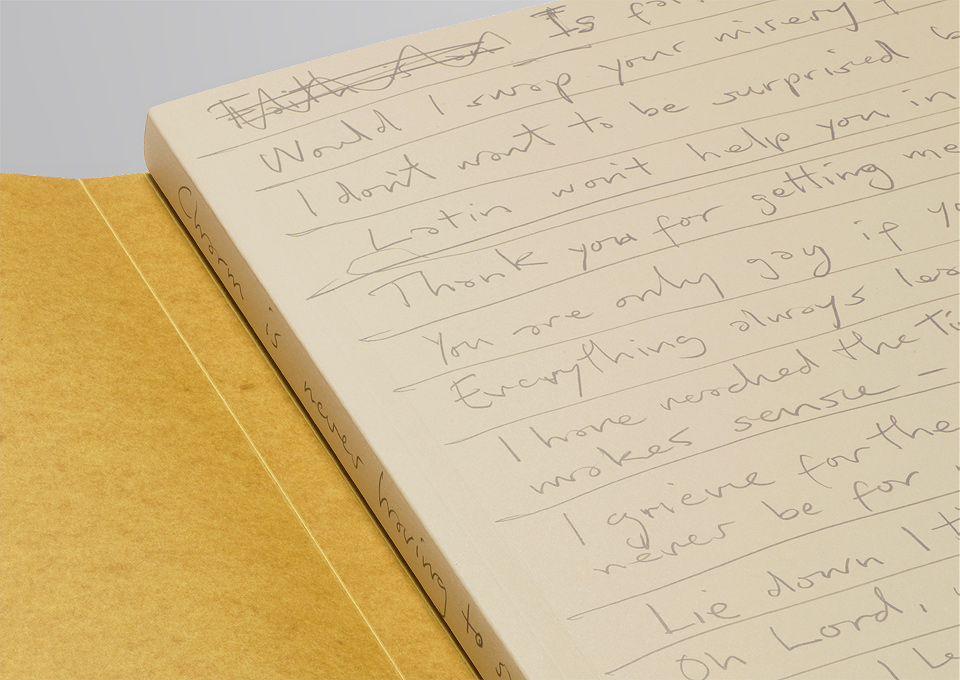 Faith Is
Would I swap your misery
I don't want to be surprised
Latin won't help you in
Thank you for getting me
You are only gay if
Everything always
I have reached the
makes sense -
I grieve for the
never be for
Lie down I
Oh Lord,
I
Charm is never having to